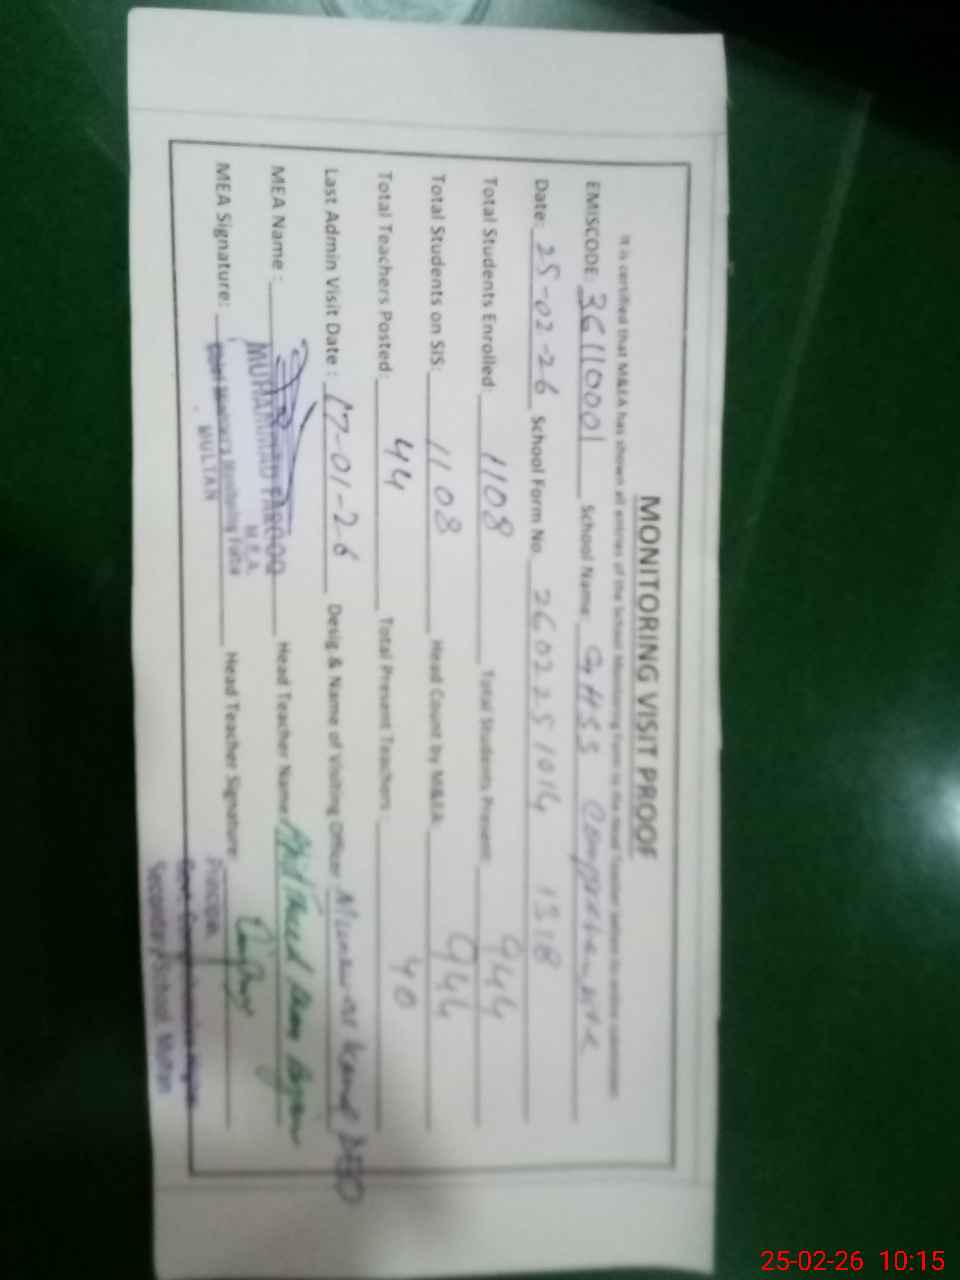 MONITORING VISIT PROOF
It is certified that M&EA has shown all entries of the School Monitoring Form to the Head Teacher before its online submission
EMISCODE: 36110001 School Name: GHSS Comprehensive
Date: 25-02-26 School Form No. 260225 1014 1318
Total Students Enrolled: 1108 Total Students Present: 944
Total Students on SIS: 1108 Head Count by M&EA: 944
Total Teachers Posted: 44 Total Present Teachers: 40
Last Admin Visit Date: 17-01-26 Desig & Name of Visiting Officer DEO
MEA Name: MUHAMMAD FAROOQ Head Teacher Name:
M.E.A.
MEA Signature: Chief Minister's Monitoring Force Head Teacher Signature:
MULTAN
Secondary School, Multan
25-02-26 10:15